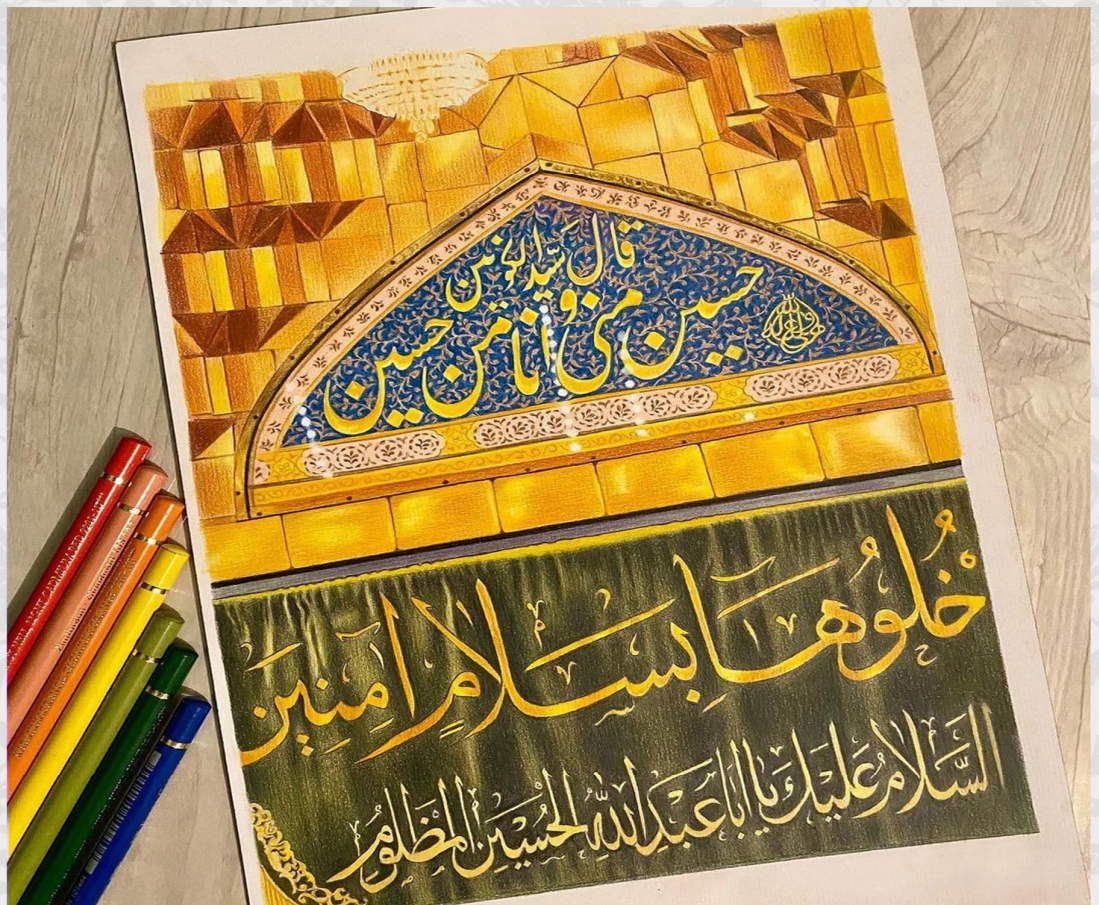 قال سيّد الكونين
حسين منی و انا من حسين
خُلُوهَا بِسَلَامٍ اٰمِنِينَ
السَّلَامُ عَلَيْكَ يَا اَبَا عَبْدِ اللهِ الْحُسَيْنِ الْمَظْلُومُ